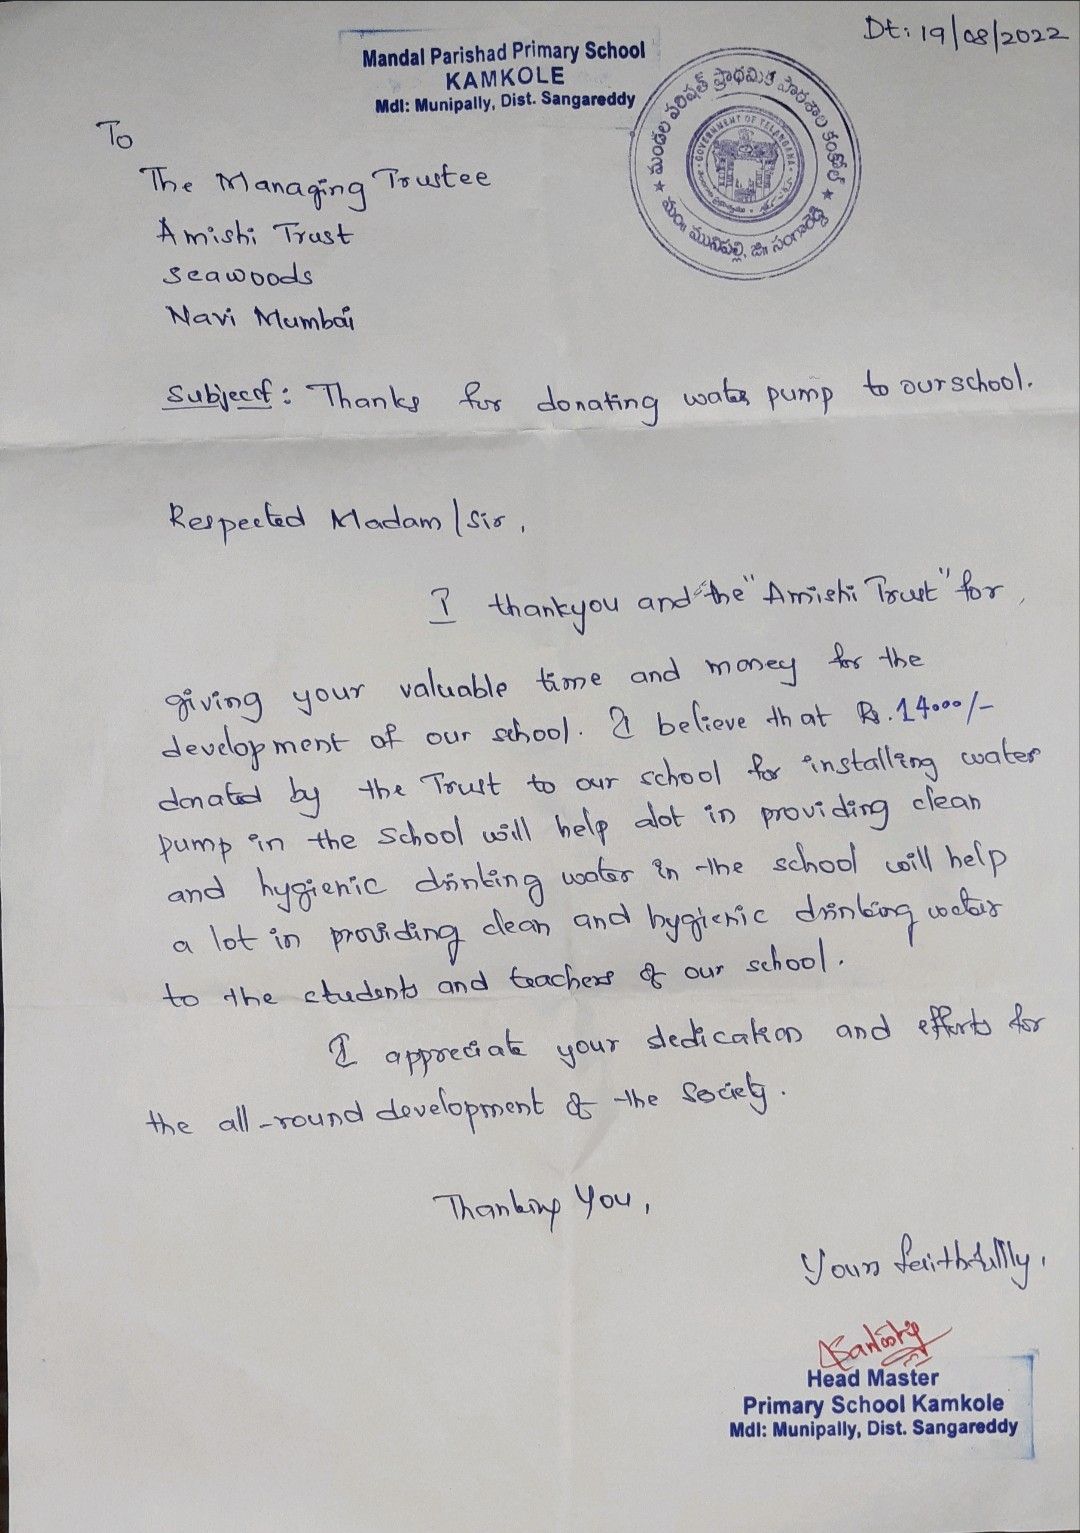 Dt: 19/08/2022
Mandal Parishad Primary School
KAMKOLE
Mdl: Munipally, Dist. Sangareddy
మండల పరిషత్ ప్రాథమిక పాఠశాల కంకోల్
★ మం॥ మునిపల్లి, జి॥ సంగారెడ్డి ★
GOVERNMENT OF TELANGANA
To
The Managing Trustee
Amishi Trust
Seawoods
Navi Mumbai
Subject: Thanks for donating water pump to our school.
Respected Madam/Sir,
I thankyou and the "Amishi Trust" for,
giving your valuable time and money for the
development of our school. I believe that Rs.14000/-
donated by the Trust to our school for installing water
pump in the school will help alot in providing clean
and hygienic drinking water in the school will help
a lot in providing clean and hygienic drinking water
to the students and teachers of our school.
I appreciate your dedication and efforts for
the all-round development of the society.
Thanking You,
Yours faithfully,
Head Master
Primary School Kamkole
Mdl: Munipally, Dist. Sangareddy